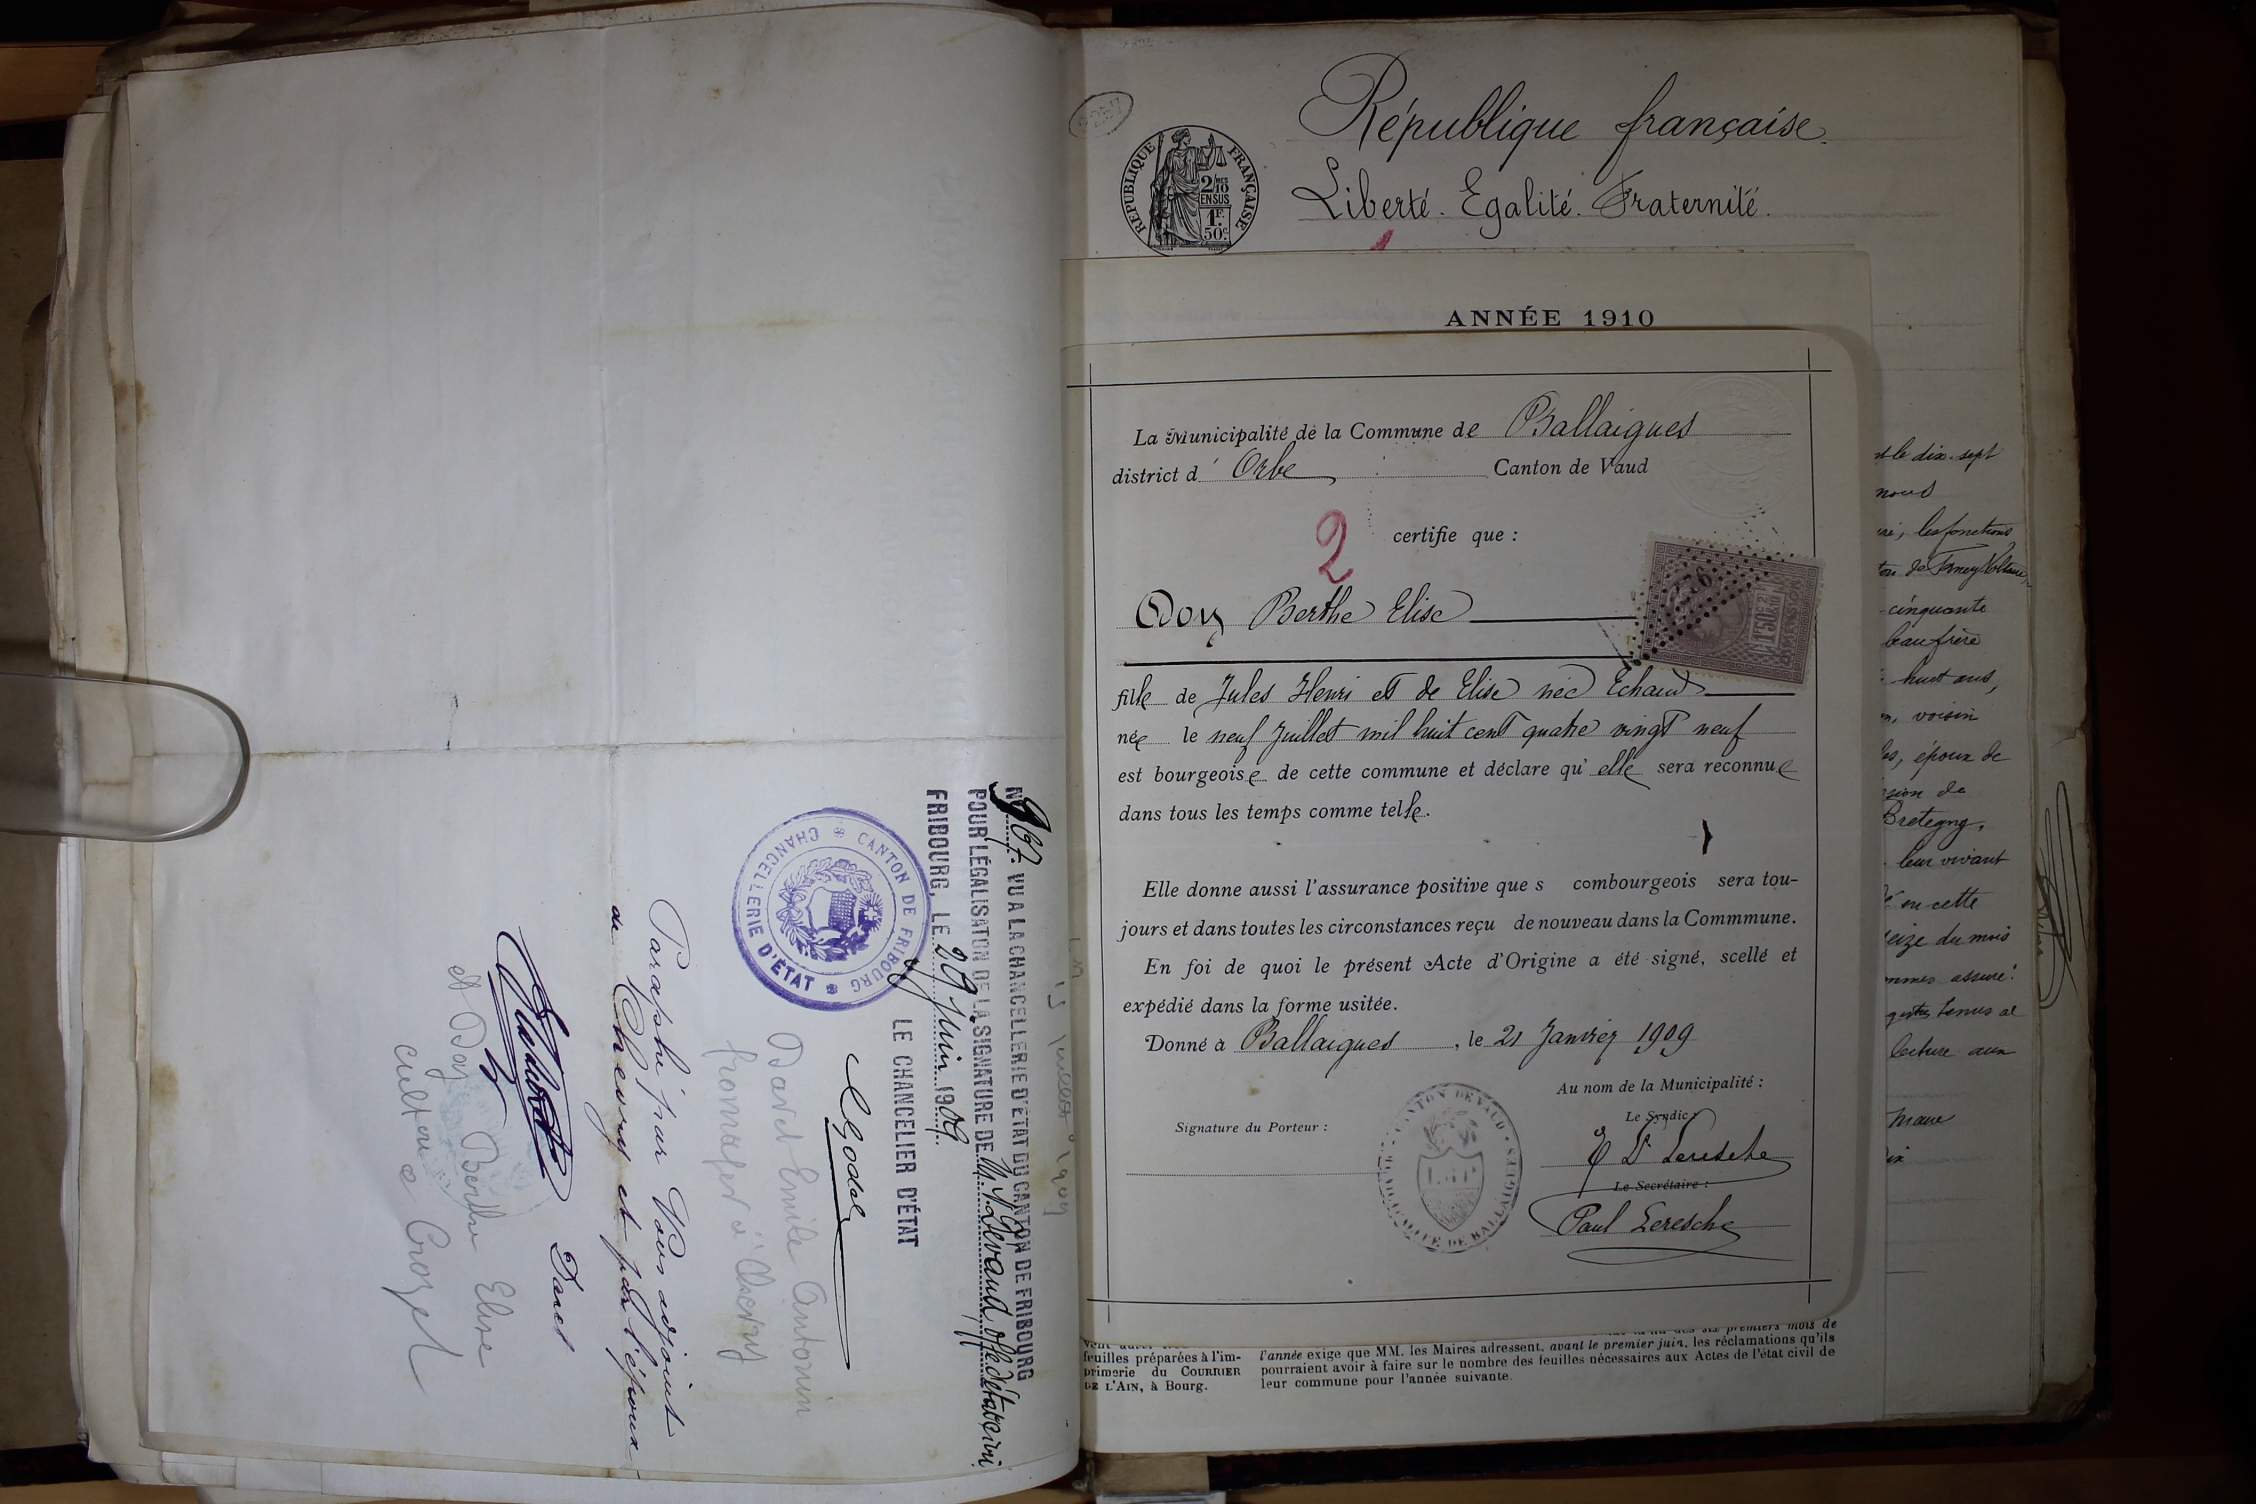 No 967. VU A LA CHANCELLERIE D'ÉTAT DU CANTON DE FRIBOURG
POUR LÉGALISATON DE LA SIGNATURE DE M. N. Levaud, off. d'état civil
FRIBOURG, LE 29 juin 1909.
LE CHANCELIER D'ÉTAT
CANTON DE FRIBOURG
CHANCELLERIE D'ÉTAT
Godel
Darel Emile Antonin
fromager à Chevry
Paraphé par Nous adjoint
de Chevry et par l'époux
Darel
et Doy Berthe Elise
cultive Crozel
juillet 1909
République française.
Liberté. Egalité. Fraternité.
RÉPUBLIQUE FRANÇAISE
2/10
EN SUS
1F.
50c.
ANNÉE 1910
La Municipalité de la Commune de Ballaigues
district d' Orbe Canton de Vaud
2
certifie que :
Doy Berthe Elise
fille de Jules Henri et de Elise née Echaud
née le neuf Juillet mil huit cent quatre vingt neuf
est bourgeoise de cette commune et déclare qu' elle sera reconnue
dans tous les temps comme telle.
Elle donne aussi l'assurance positive que s combourgeois sera tou-
jours et dans toutes les circonstances reçu de nouveau dans la Commmune.
En foi de quoi le présent Acte d'Origine a été signé, scellé et
expédié dans la forme usitée.
Donné à Ballaigues, le 21 Janvier 1909
Au nom de la Municipalité :
Signature du Porteur :
Le Syndic :
Le Secrétaire :
Paul Leresche
CANTON DE VAUD
MUNICIPALITÉ DE BALLAIGUES
six premiers mois de
feuilles préparées à l'im-
primerie du COURRIER
DE L'AIN, à Bourg.
l'année exige que MM. les Maires adressent, avant le premier juin, les réclamations qu'ils
pourraient avoir à faire sur le nombre des feuilles nécessaires aux Actes de l'état civil de
leur commune pour l'année suivante.
le dix-sept
nous
les fonctions
de Ferney Voltaire,
cinquante
beau frère
huit ans,
voisin
époux de
de
Bretegny,
leur vivant
en cette
seize du mois
assuré
tenus al
lecture aux
maire